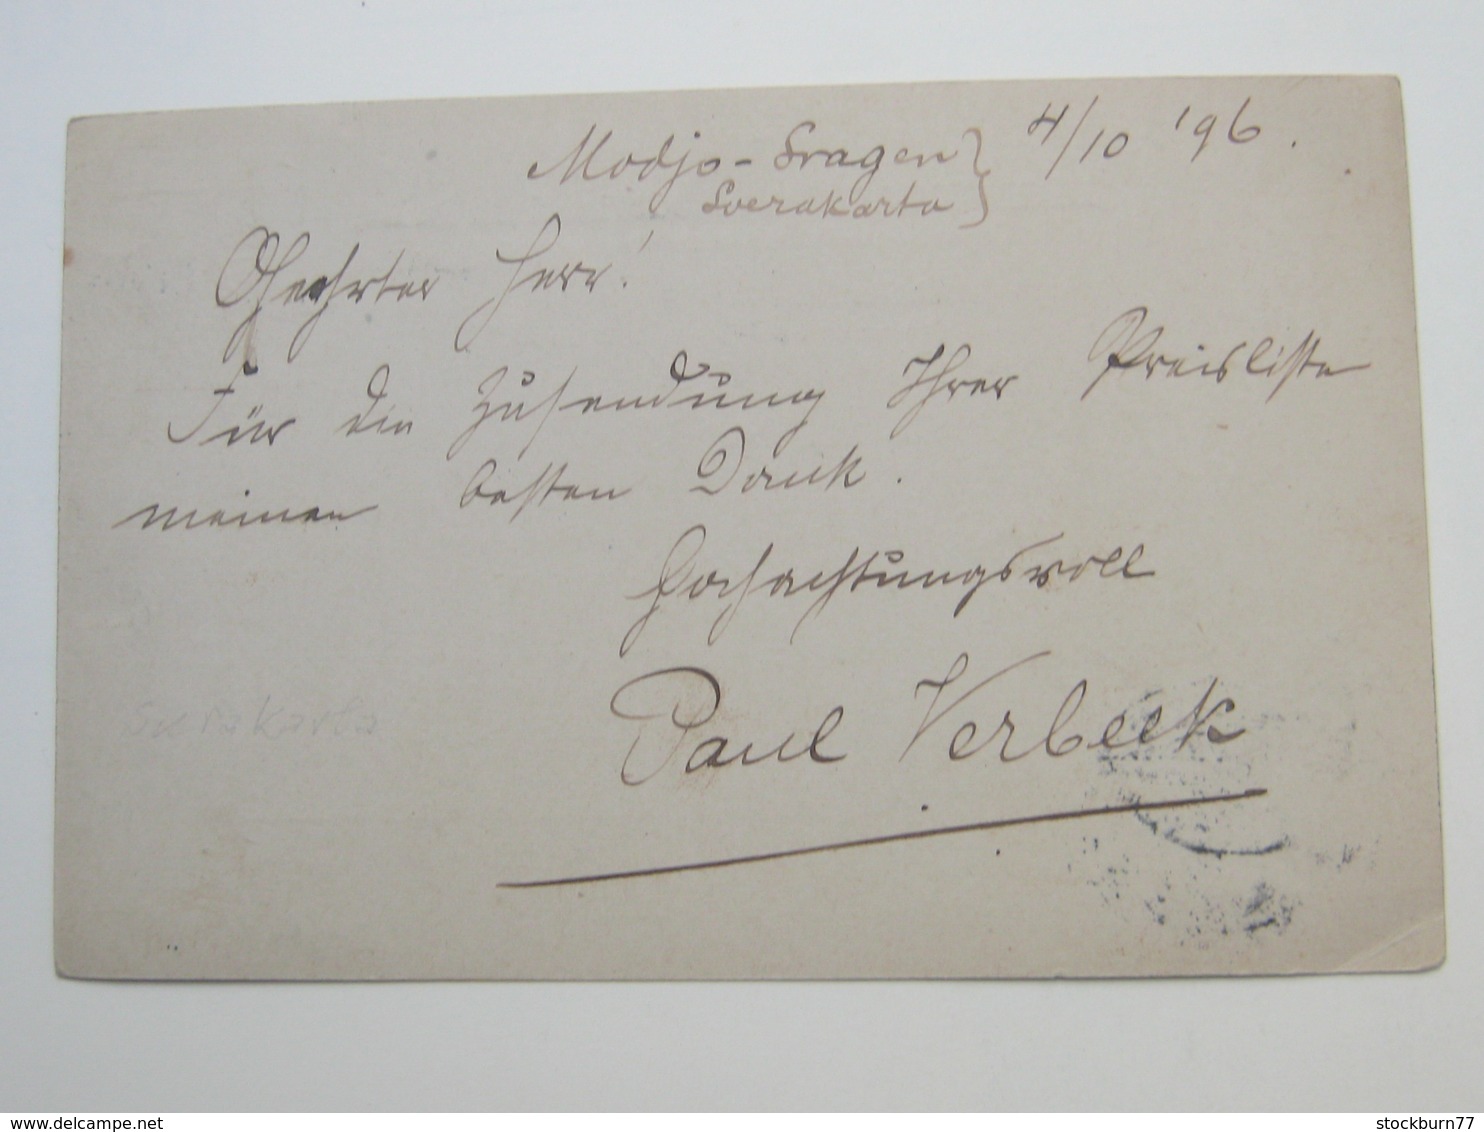 Modjo-Sragen } 4/10 '96.
Soerakarta
Geehrter Herr!
Für die Zusendung Ihrer Preisliste
meinen besten Dank.
Hochachtungsvoll
Paul Verbeek
Soerakarta
© www.delcampe.net
stockburn77